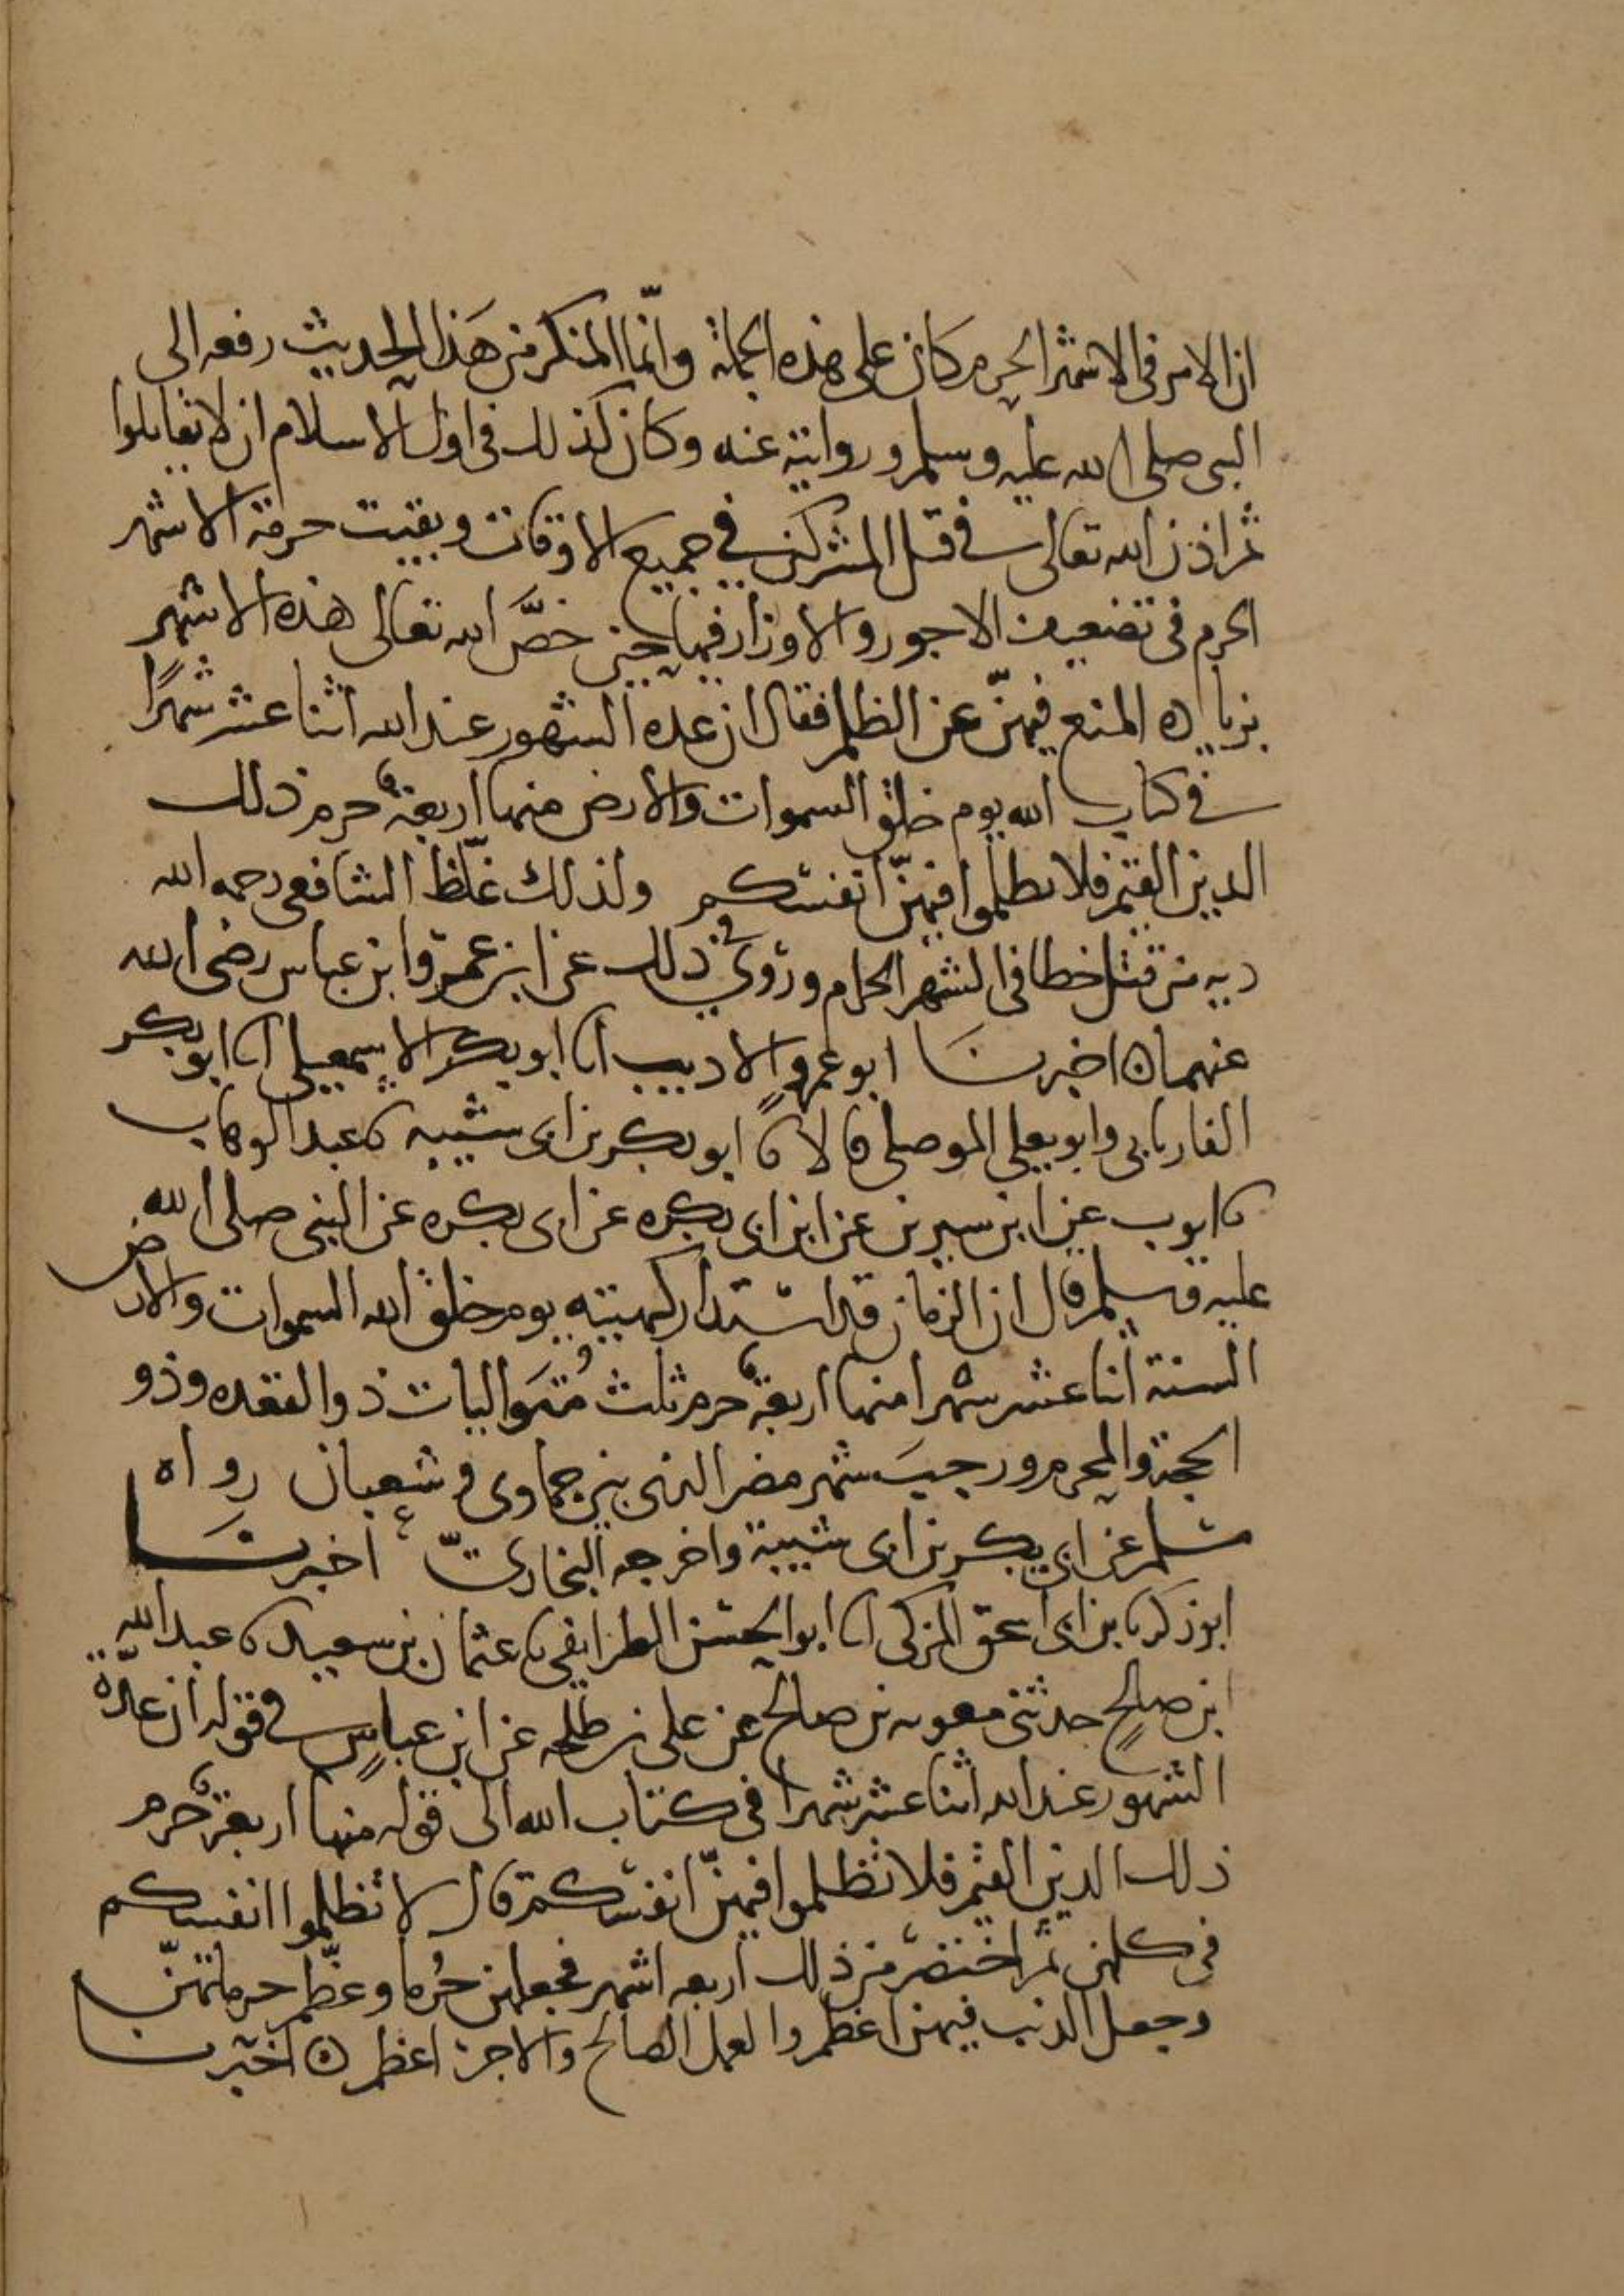 ان الامر في الاشهر الحرم كان على هذه الجملة وانّما المنكر من هَذا الحديث رفعه الى
النبي صلى الله عليه وسلم وروايته عنه وكان كذلك في اول الاسلام ان لا يقاتلوا
ثم اذن الله تعالى في قتل المشركين في جميع الاوقات وبقيت حرمة الاشهر
الحرم في تضعيف الاجور والاوزار فيها حين خصَّ الله تعالى هذه الاشهر
بزياده المنع فيهنّ عن الظلم فقال ان عده الشهور عند الله اثنا عشر شهرًا
في كتاب الله يوم خلق السموات والارض منها اربعة حرم ذلك
الدين القيم فلا تظلموا فيهنّ انفسكم ولذلك غلّظ الشافعي رحمه الله
ديه من قتل خطا في الشهر الحرام وروي في ذلك عن ابن عمر وابن عباس رضي الله
عنهما ه اخبرنا ابو عمرٍو الاديب انا ابو بكر الاسمعيلي انا ابو بكر
الفاريابي وابو يعلى الموصلي قالا نا ابو بكر بن ابى شيبه نا عبد الوهاب
نا ايوب عن ابن سيرين عن ابن ابى بكره عن ابى بكره عن النبي صلى الله
عليه وسلم قال ان الزمان قد استدار كهيئته يوم خلق الله السموات والارض
السنة اثنا عشر شهرا منها اربعة حرم ثلث مُتَواليات ذو القعده وذو
الحجة والمحرم ورجبَ شهر مضر الذى بين جمادى وشعبان رواه
مسلم عن ابى بكر بن ابى شيبة واخرجه البخاريّ اخبرنَا
ابو زكريا بن ابى اسحق المزكى انا ابو الحسن الطرايفي نا عثمان بن سعيد نا عبد الله
ابن صالحٍ حدثنى معويه بن صالح عن على بن طلحه عن ابن عباسٍ في قوله ان عدّة
الشهور عند الله اثنا عشر شهرا في كتاب الله الى قوله منها اربعة حرم
ذلك الدين القيم فلا تظلموا فيهنّ انفسكم قال لا تظلموا انفسكم
في كلهن ثم اختصّ من ذلك اربعه اشهر فجعلهن حُرما وعظّم حرماتهنّ
وجعل الذنب فيهن اعظم والعمل الصالح والاجر اعظم ه اخبرنا